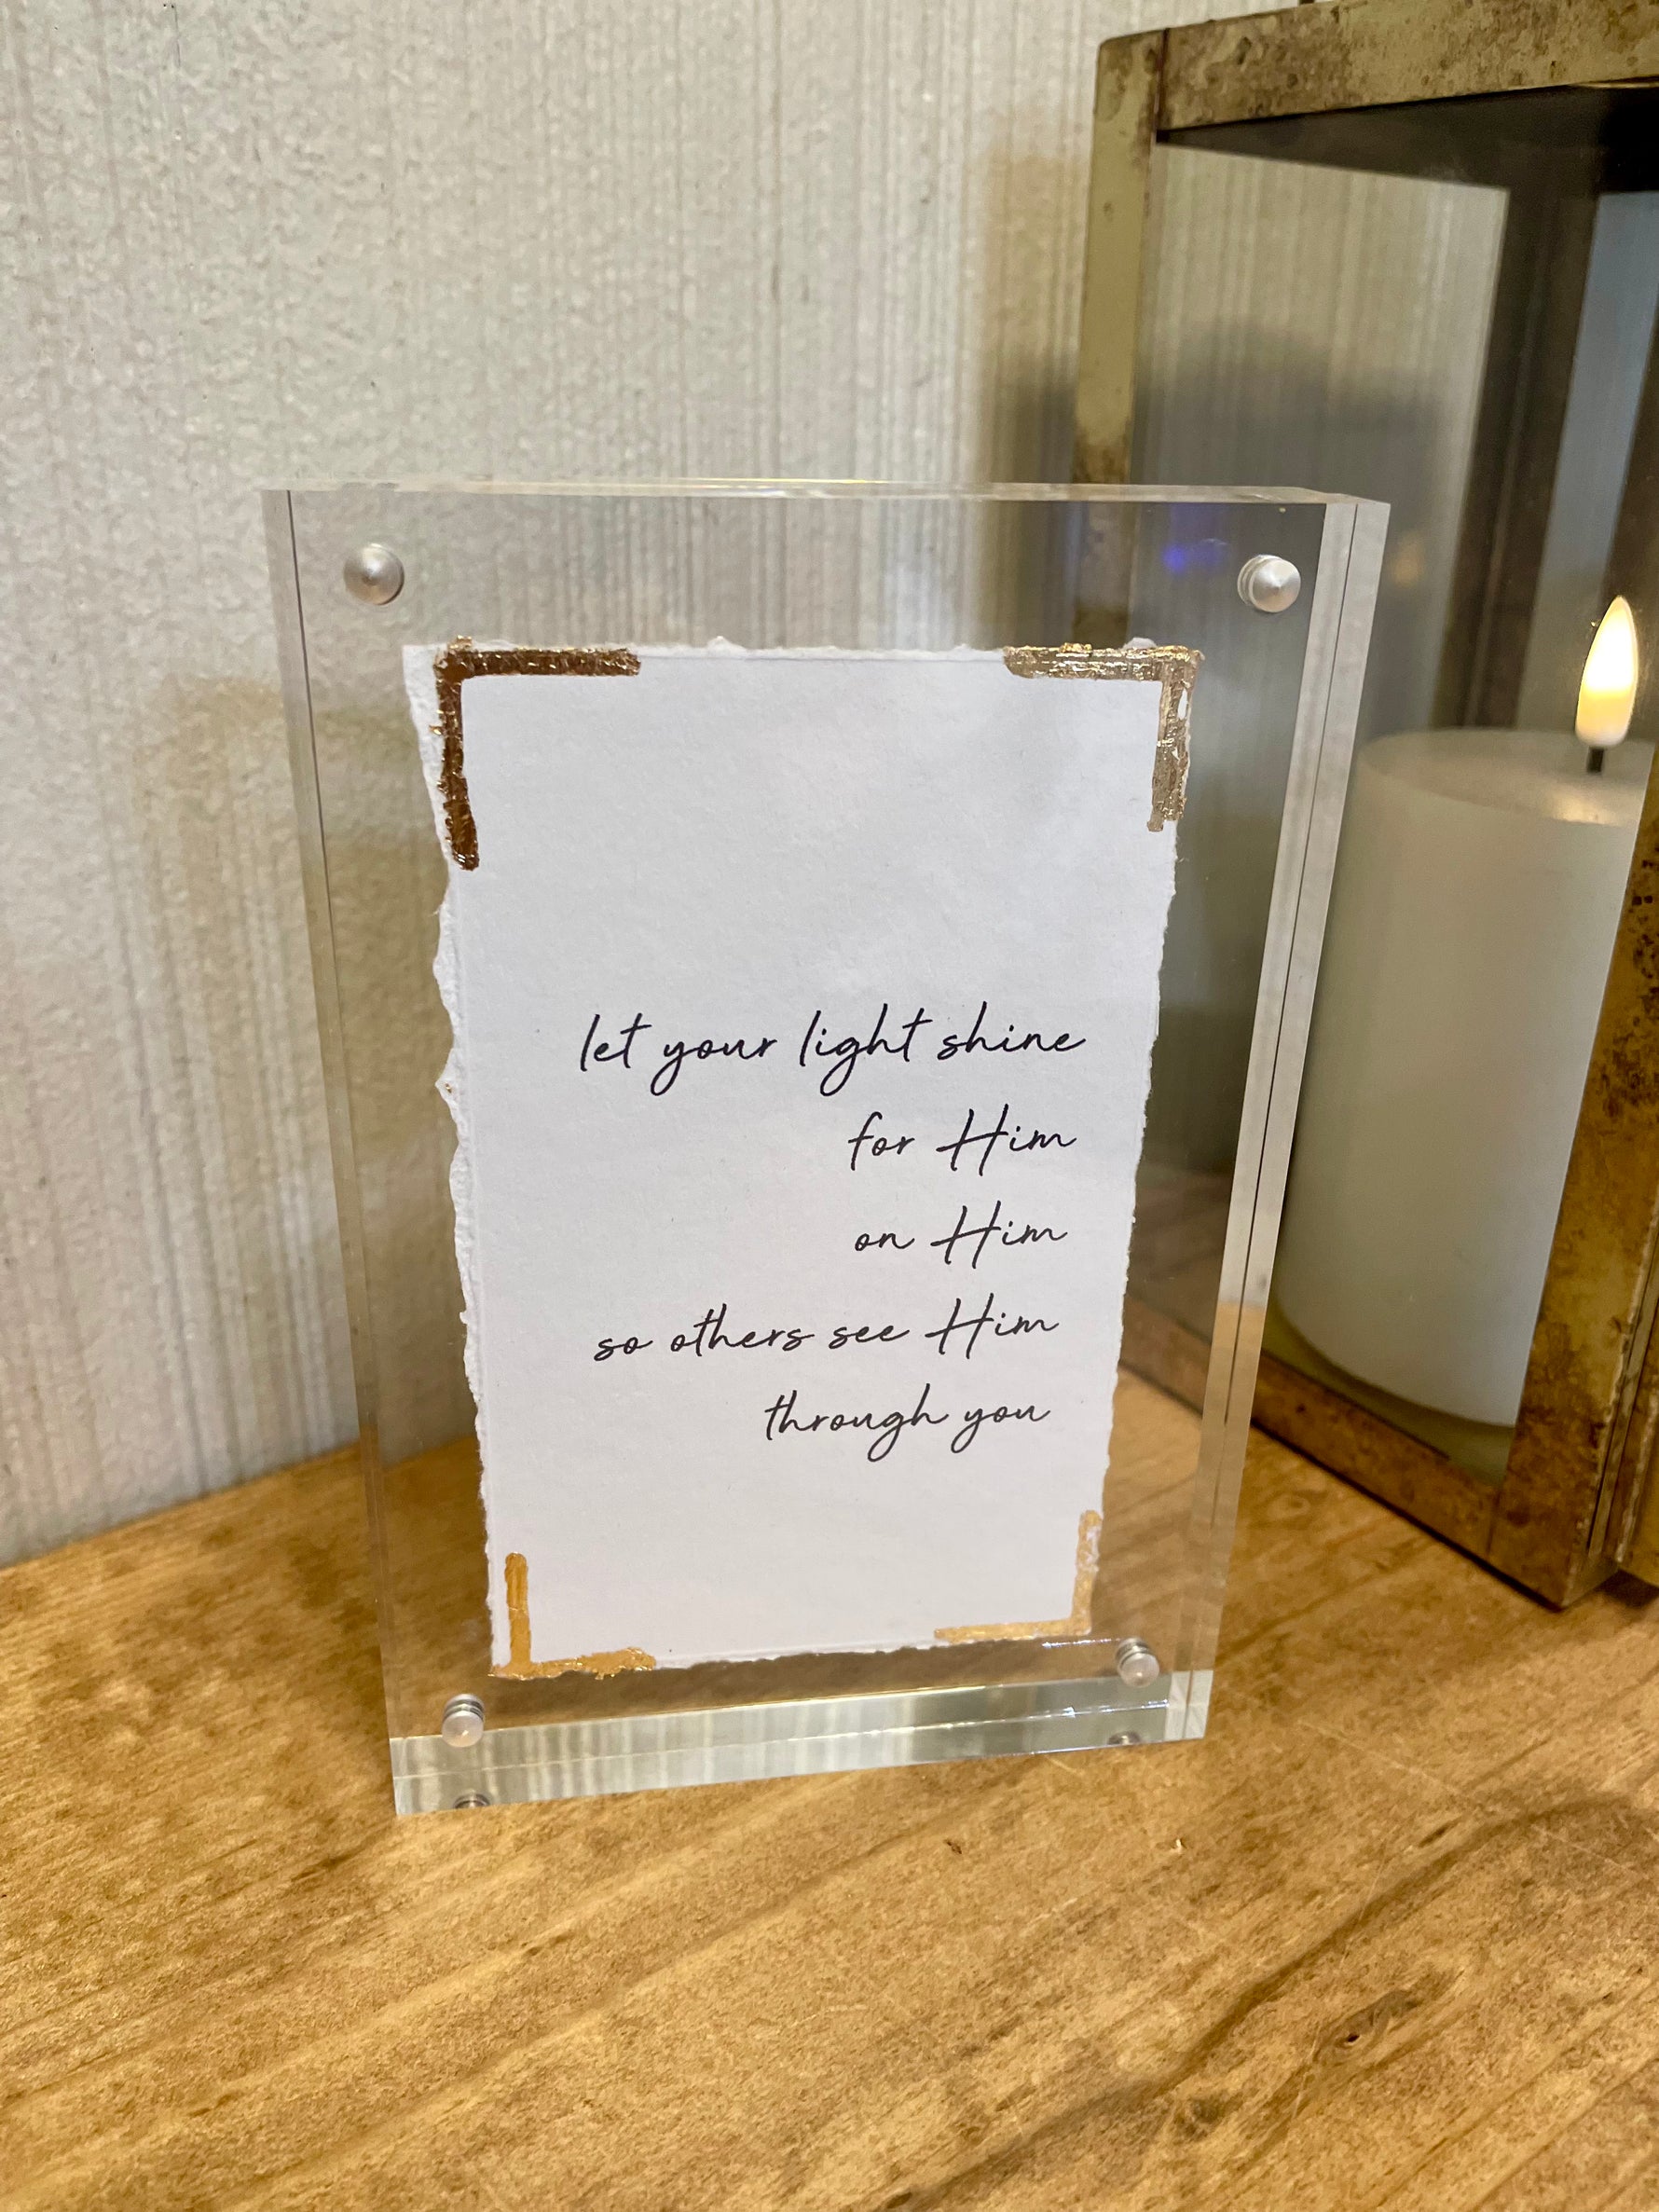 let your light shine
for Him
on Him
so others see Him
through you